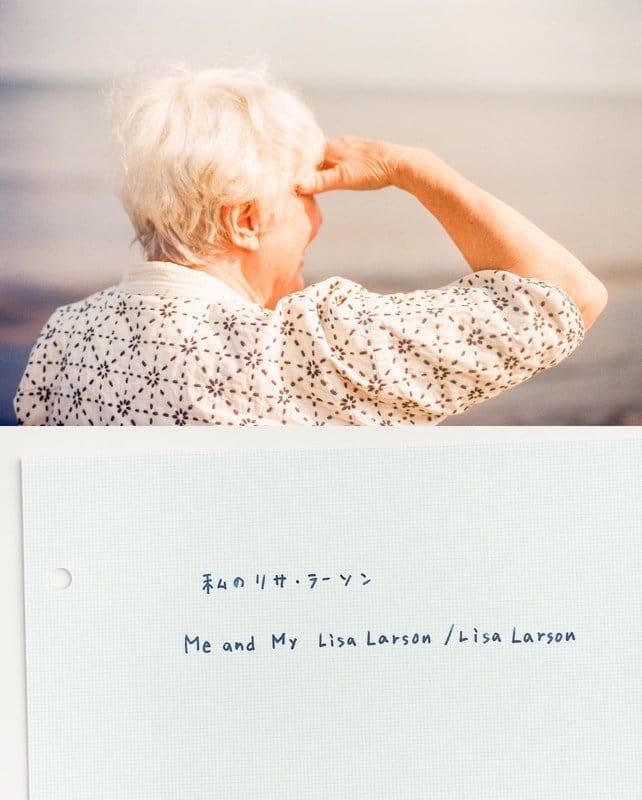 私のリサ・ラーソン
Me and My Lisa Larson / Lisa Larson